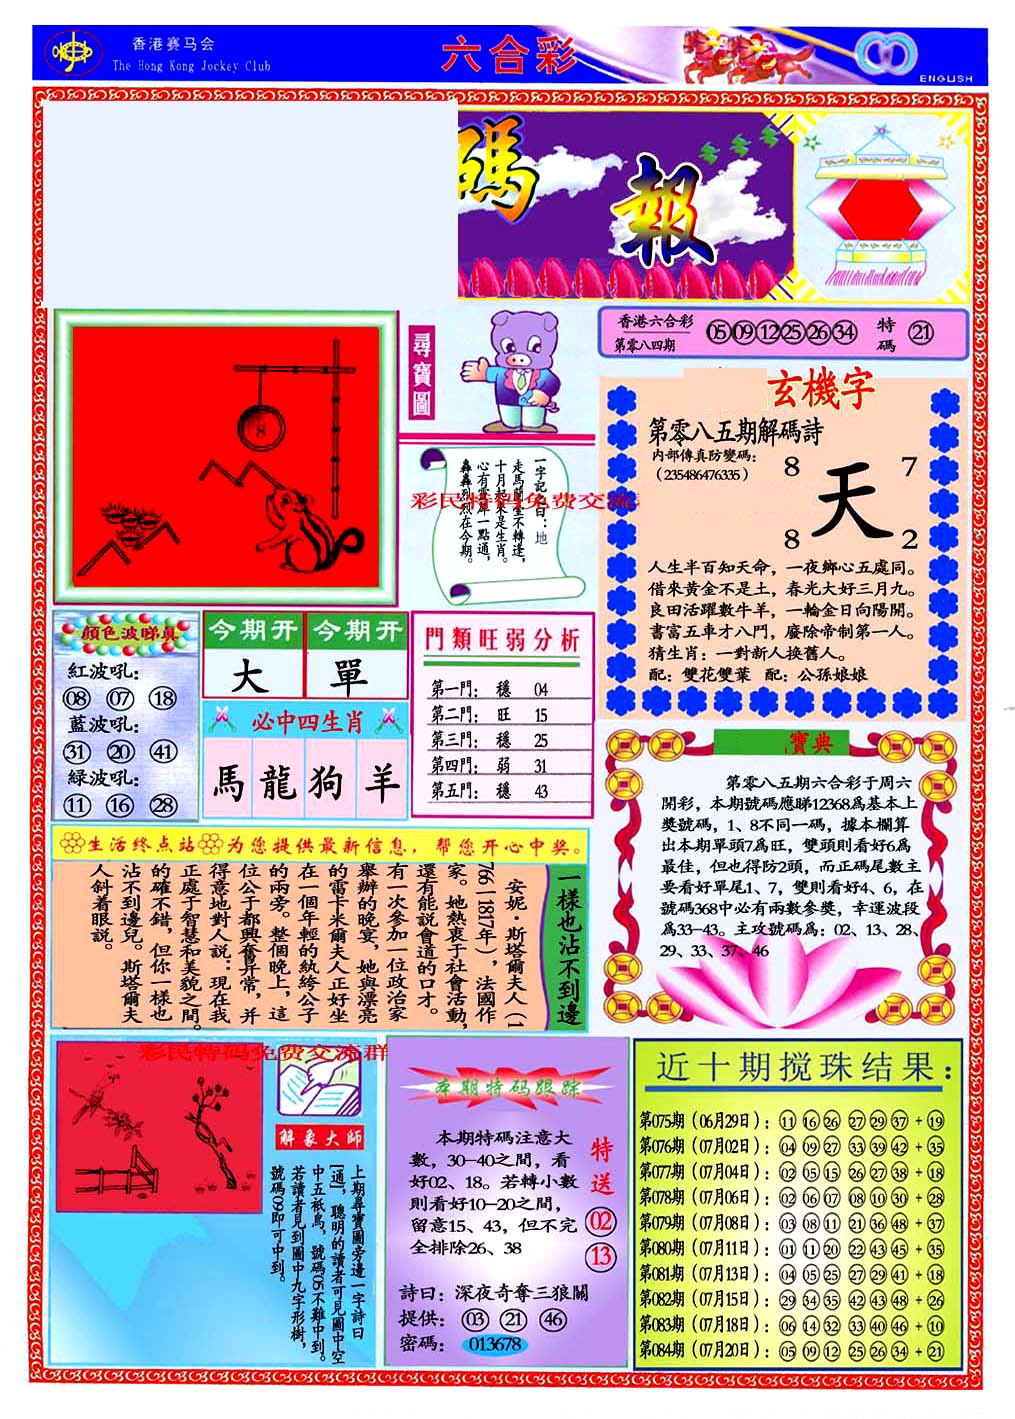 香港赛马会
The Hong Kong Jockey Club
六合彩
ENGLISH
碼報
尋寶圖
8
香港六合彩
第零八四期
05 09 12 25 26 34 特碼 21
一字記之曰：地
走馬蘭臺不轉逢，
十月起來是生肖。
心有靈犀一點通，
轟轟烈烈在今期。
彩民特码免费交流
玄機字
第零八五期解碼詩
内部傳真防變碼：
（235486476335）
8 7
天
8 2
人生半百知天命，一夜鄉心五處同。
借來黄金不是土，春光大好三月九。
良田活躍數牛羊，一輪金日向陽開。
書富五車才八鬥，廢除帝制第一人。
猜生肖：一對新人换舊人。
配：雙花雙葉 配：公孫娘娘
顔色波睇真
紅波吼：
08 07 18
藍波吼：
31 20 41
緑波吼：
11 16 28
今期开 今期开
大 單
必中四生肖
馬 龍 狗 羊
門類旺弱分析
第一門： 穩 04
第二門： 旺 15
第三門： 穩 25
第四門： 弱 31
第五門： 穩 43
寶典
第零八五期六合彩于周六
開彩，本期號碼應睇12368爲基本上
獎號碼，1、8不同一碼，據本欄算
出本期單頭7爲旺，雙頭則看好6爲
最佳，但也得防2頭，而正碼尾數主
要看好單尾1、7，雙則看好4、6，在
號碼368中必有兩數參獎，幸運波段
爲33-43。主攻號碼爲：02、13、28、
29、33、37、46
生活终点站 为您提供最新信息，帮您开心中奖。
一樣也沾不到邊
安妮·斯塔爾夫人（1
766—1817年），法國作
家。她熱衷于社會活動，
還有能説會道的口才。
有一次參加一位政治家
舉辦的晚宴，她與漂亮
的雷卡米爾夫人正好坐
在一個年輕的紈绔公子
的兩旁。整個晚上，這
位公子都興奮异常，并
得意地對人説：現在我
正處于智慧和美貌之間。
的確不錯，但你一樣也
沾不到邊兒。斯塔爾夫
人斜着眼説。
彩民特码免费交流群
解象大師
上期尋寶圖旁邊一字詩曰
[通]，聰明的讀者可見圖中空
中五祇鳥，號碼05不難中到。
若讀者見到圖中九字形樹，
號碼09即可中到。
本期特码跟踪
本期特碼注意大
數，30-40之間，看
好02、18。若轉小數
則看好10-20之間，
留意15、43，但不完
全排除26、38
特送
02
13
詩曰：深夜奇奪三狼關
提供： 03 21 46
密碼： 013678
近十期搅珠结果：
第075期（06月29日）：11 16 26 27 29 37 + 19
第076期（07月02日）：04 09 27 33 39 42 + 35
第077期（07月04日）：02 05 15 26 27 38 + 18
第078期（07月06日）：02 06 07 08 10 30 + 28
第079期（07月08日）：03 08 11 21 36 48 + 37
第080期（07月11日）：01 11 20 22 43 45 + 35
第081期（07月13日）：04 05 25 27 29 41 + 18
第082期（07月15日）：29 34 35 42 43 48 + 26
第083期（07月18日）：06 14 32 33 40 46 + 10
第084期（07月20日）：05 09 12 25 26 34 + 21